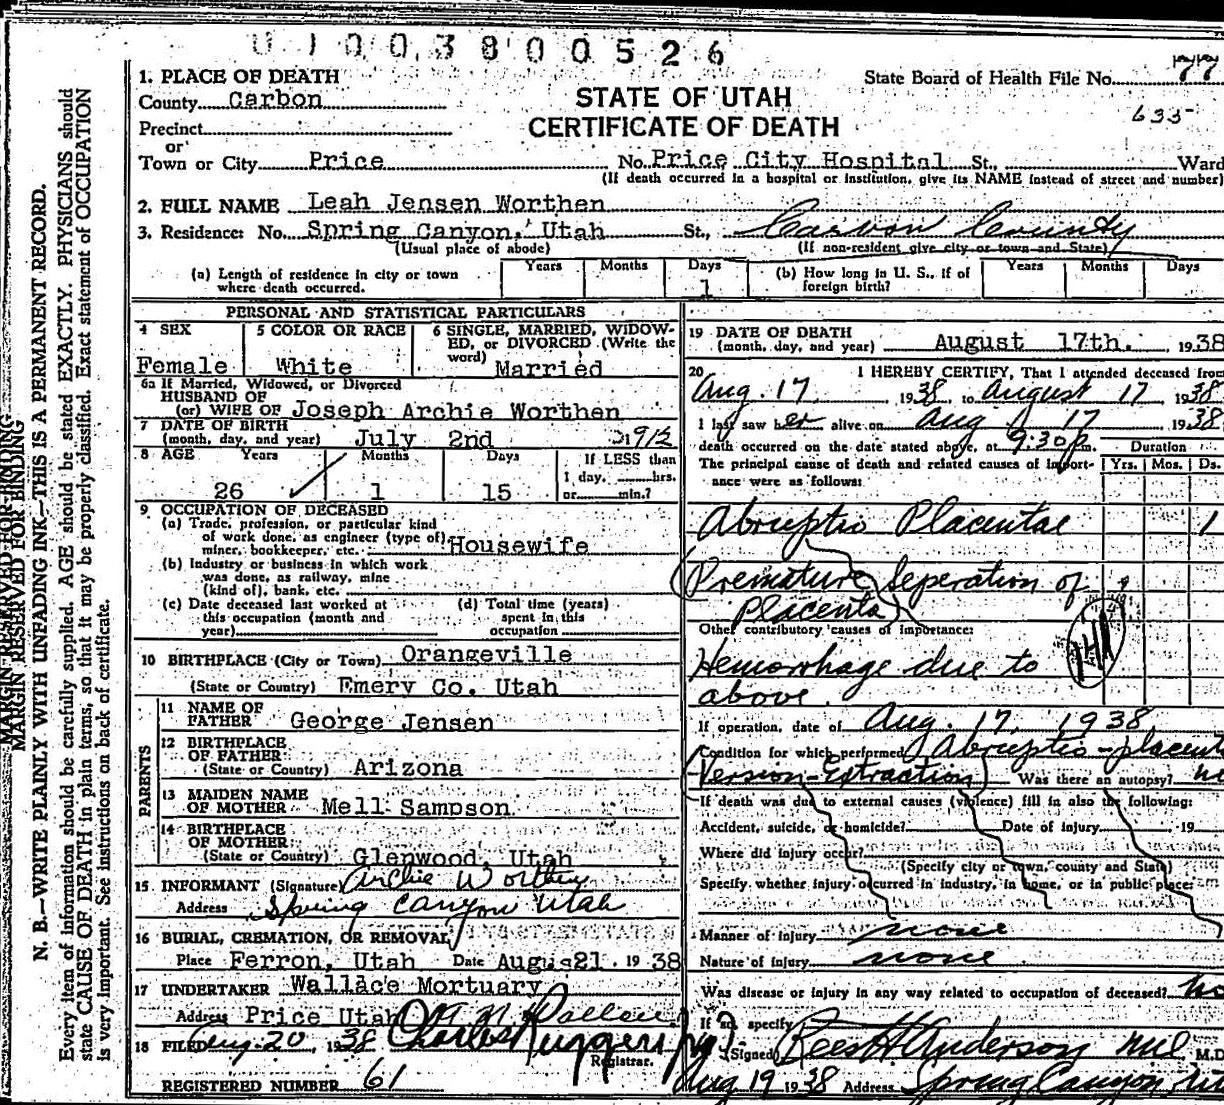 U1003800526
1. PLACE OF DEATH
State Board of Health File No. 77
County Carbon
STATE OF UTAH
635
Precinct
CERTIFICATE OF DEATH
or
Town or City Price No. Price City Hospital St., Ward
(If death occurred in a hospital or institution, give its NAME instead of street and number)
2. FULL NAME Leah Jensen Worthen
3. Residence: No. Spring Canyon, Utah St., Carbon County
(Usual place of abode) (If non-resident give city or town and State)
(a) Length of residence in city or town where death occurred. Years Months Days 1
(b) How long in U. S., if of foreign birth? Years Months Days
PERSONAL AND STATISTICAL PARTICULARS
4 SEX Female
5 COLOR OR RACE White
6 SINGLE, MARRIED, WIDOWED, or DIVORCED (Write the word) Married
6a If Married, Widowed, or Divorced
HUSBAND OF
(or) WIFE OF Joseph Archie Worthen
7 DATE OF BIRTH
(month, day, and year) July 2nd 1912
8 AGE Years Months Days If LESS than
1 day, hrs.
26 1 15 or min.?
9 OCCUPATION OF DECEASED
(a) Trade, profession, or particular kind
of work done, as engineer (type of)
miner, bookkeeper, etc. Housewife
(b) Industry or business in which work
was done, as railway, mine
(kind of), bank, etc.
(c) Date deceased last worked at
this occupation (month and
year)
(d) Total time (years)
spent in this
occupation
10 BIRTHPLACE (City or Town) Orangeville
(State or Country) Emery Co. Utah
PARENTS
11 NAME OF
FATHER George Jensen
12 BIRTHPLACE
OF FATHER
(State or Country) Arizona
13 MAIDEN NAME
OF MOTHER Mell Sampson
14 BIRTHPLACE
OF MOTHER
(State or Country) Glenwood, Utah
15 INFORMANT (Signature) Archie Worthen
Address Spring Canyon Utah
16 BURIAL, CREMATION, OR REMOVAL
Place Ferron, Utah Date Augus 21. 1938
17 UNDERTAKER Wallace Mortuary
Address Price Utah
18 FILED Aug. 20, 1938 Charles Ruggeri
Registrar.
REGISTERED NUMBER 61
19 DATE OF DEATH
(month, day, and year) August 17th. 1938
20 I HEREBY CERTIFY, That I attended deceased from
Aug. 17, 1938 to August 17 1938
I last saw her alive on Aug 17 1938
death occurred on the date stated above, at 9:30 p m. Duration
The principal cause of death and related causes of import- Yrs. Mos. Ds.
ance were as follows:
Abruptio Placentae 1
(Premature Seperation of
Placenta)
Other contributory causes of importance:
Hemorrhage due to
above.
If operation, date of Aug. 17, 1938
Condition for which performed Abruptio-placent
(Version-Extraction) Was there an autopsy? no
If death was due to external causes (violence) fill in also the following:
Accident, suicide, or homicide? Date of injury 19
Where did injury occur?
(Specify city or town, county and State)
Specify whether injury occurred in industry, in home, or in public place:
Manner of injury none
Nature of injury none
Was disease or injury in any way related to occupation of deceased? No
If so, specify
(Signed) Rees H Anderson M.D
Aug 19 1938 Address Spring Canyon, Ut
MARGIN RESERVED FOR BINDING
N. B.—WRITE PLAINLY WITH UNFADING INK—THIS IS A PERMANENT RECORD.
Every item of information should be carefully supplied. AGE should be stated EXACTLY. PHYSICIANS should
state CAUSE OF DEATH in plain terms, so that it may be properly classified. Exact statement of OCCUPATION
is very important. See instructions on back of certificate.